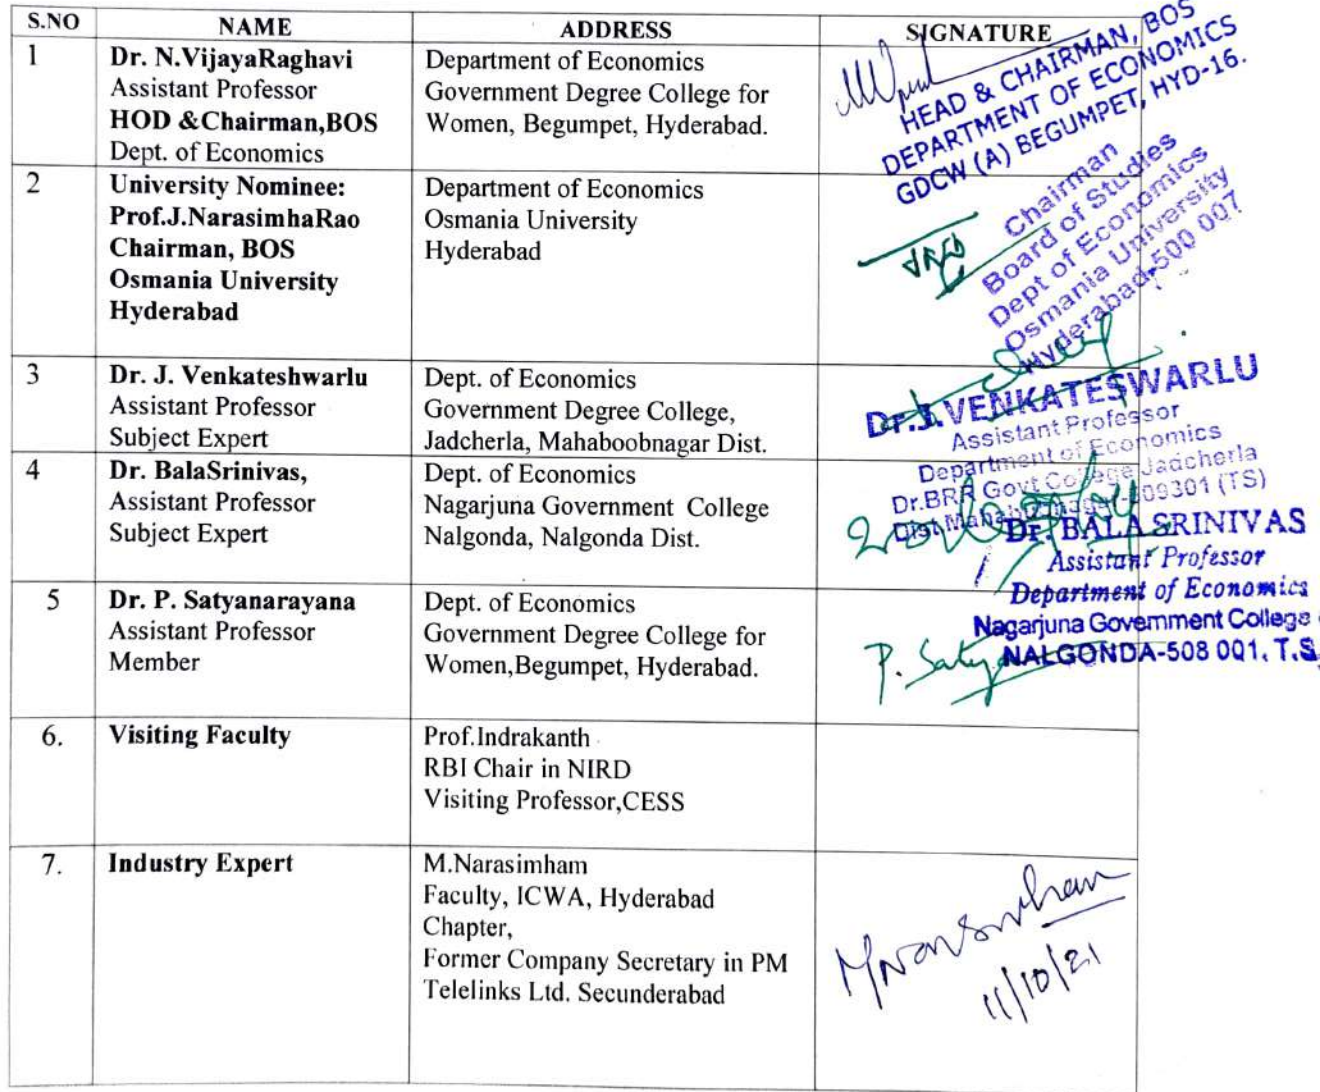 S.NO NAME ADDRESS SIGNATURE
1 Dr. N.VijayaRaghavi
Assistant Professor
HOD &Chairman,BOS
Dept. of Economics
Department of Economics
Government Degree College for
Women, Begumpet, Hyderabad.
HEAD & CHAIRMAN, BOS
DEPARTMENT OF ECONOMICS
GDCW (A) BEGUMPET, HYD-16.
2 University Nominee:
Prof.J.NarasimhaRao
Chairman, BOS
Osmania University
Hyderabad
Department of Economics
Osmania University
Hyderabad
Chairman
Board of Studies
Dept of Economics
Osmania University
Hyderabad-500 007
3 Dr. J. Venkateshwarlu
Assistant Professor
Subject Expert
Dept. of Economics
Government Degree College,
Jadcherla, Mahaboobnagar Dist.
Dr.J.VENKATESWARLU
Assistant Professor
Department of Economics
Dr.BRR Govt College Jadcherla
Dist. (TS)
4 Dr. BalaSrinivas,
Assistant Professor
Subject Expert
Dept. of Economics
Nagarjuna Government College
Nalgonda, Nalgonda Dist.
Dr. BALA SRINIVAS
Assistant Professor
Department of Economics
Nagarjuna Government College
NALGONDA-508 001. T.S.
5 Dr. P. Satyanarayana
Assistant Professor
Member
Dept. of Economics
Government Degree College for
Women,Begumpet, Hyderabad.
P. Satya
6. Visiting Faculty
Prof.Indrakanth
RBI Chair in NIRD
Visiting Professor,CESS
7. Industry Expert
M.Narasimham
Faculty, ICWA, Hyderabad
Chapter,
Former Company Secretary in PM
Telelinks Ltd. Secunderabad
11/10/21